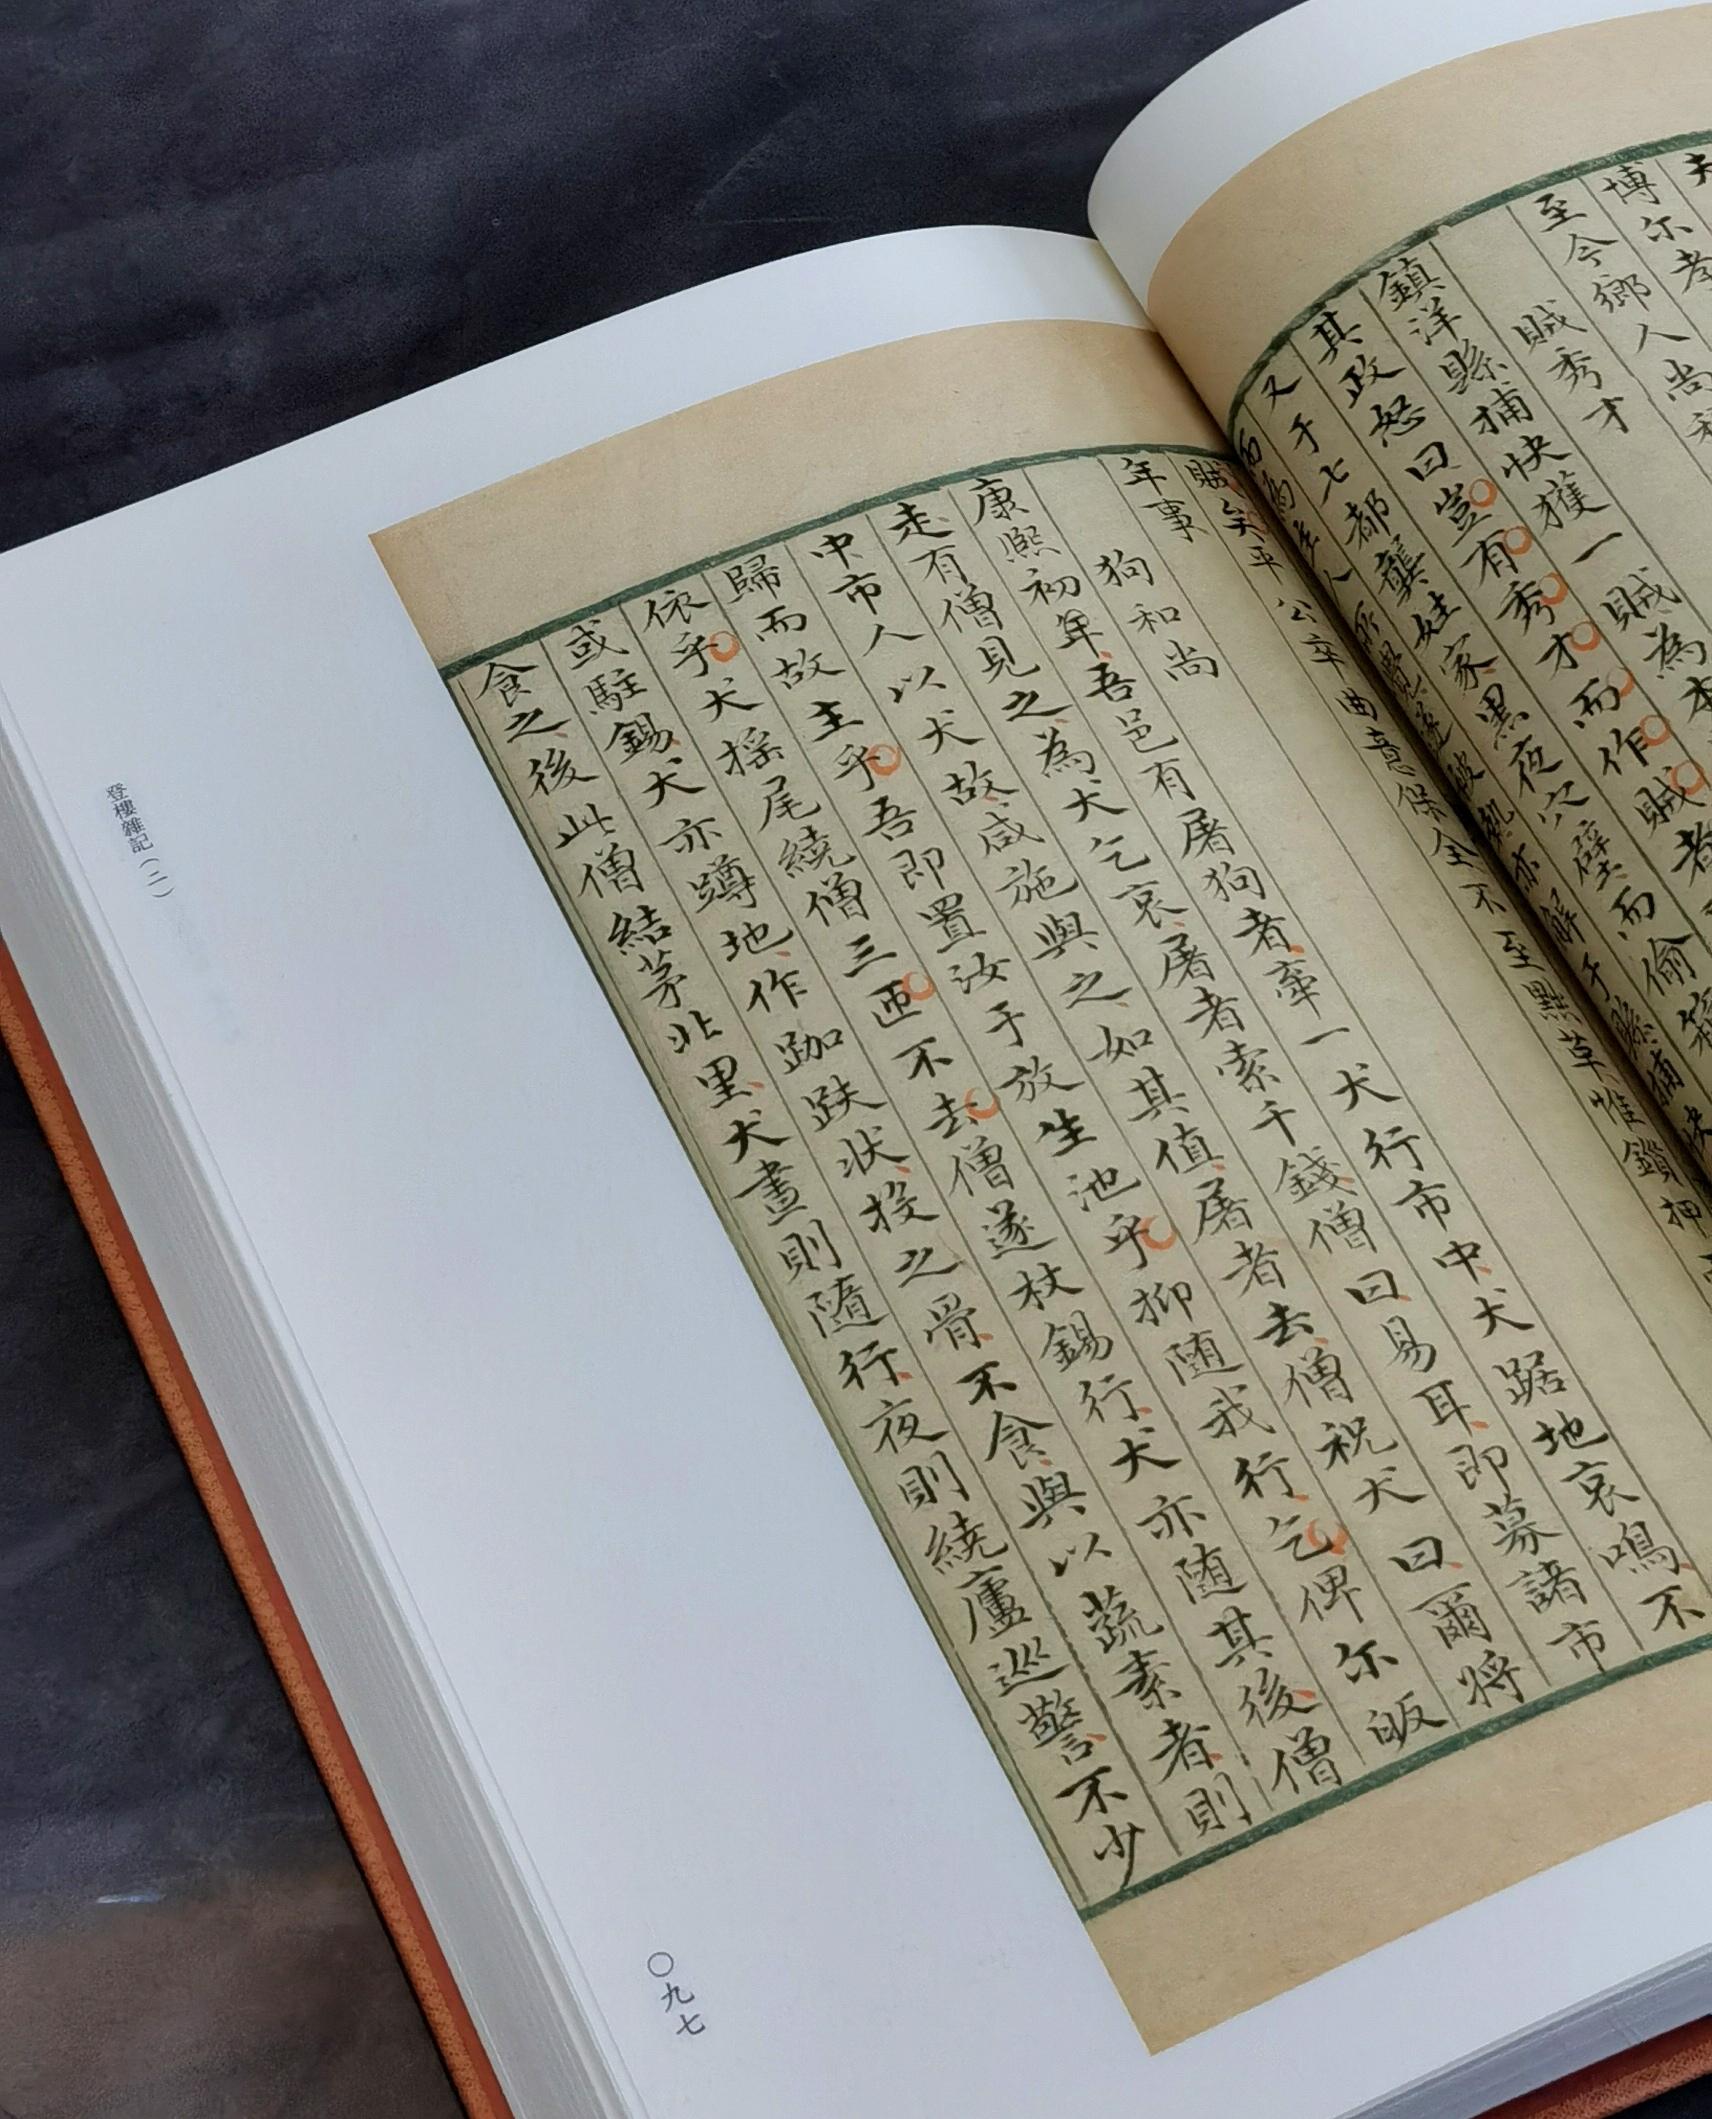 博尔孝
至今鄉人尚
賊秀才
鎮洋縣捕快獲一賊為本
其政怒曰豈有秀才而作賊者
又于七都龔姓家黑夜穴壁而偷
賊矣平公卒曲意保全不至黜革惟鎖押
年事
狗和尚
康熙初年吾邑有屠狗者牽一犬行市中犬踞地哀鳴不
走有僧見之為犬乞哀屠者索千錢僧曰易耳即募諸市
中市人以犬故咸施與之如其值屠者去僧祝犬曰爾將
歸而故主乎吾即置汝于放生池乎抑随我行乞俾尔皈
依乎犬搖尾繞僧三匝不去僧遂杖錫行犬亦随其後僧
或駐錫犬亦蹲地作跏趺状投之骨不食與以蔬素者則
食之後此僧結茅北里犬晝則隨行夜則繞廬巡警不少
登樓雜記（二）
〇九七